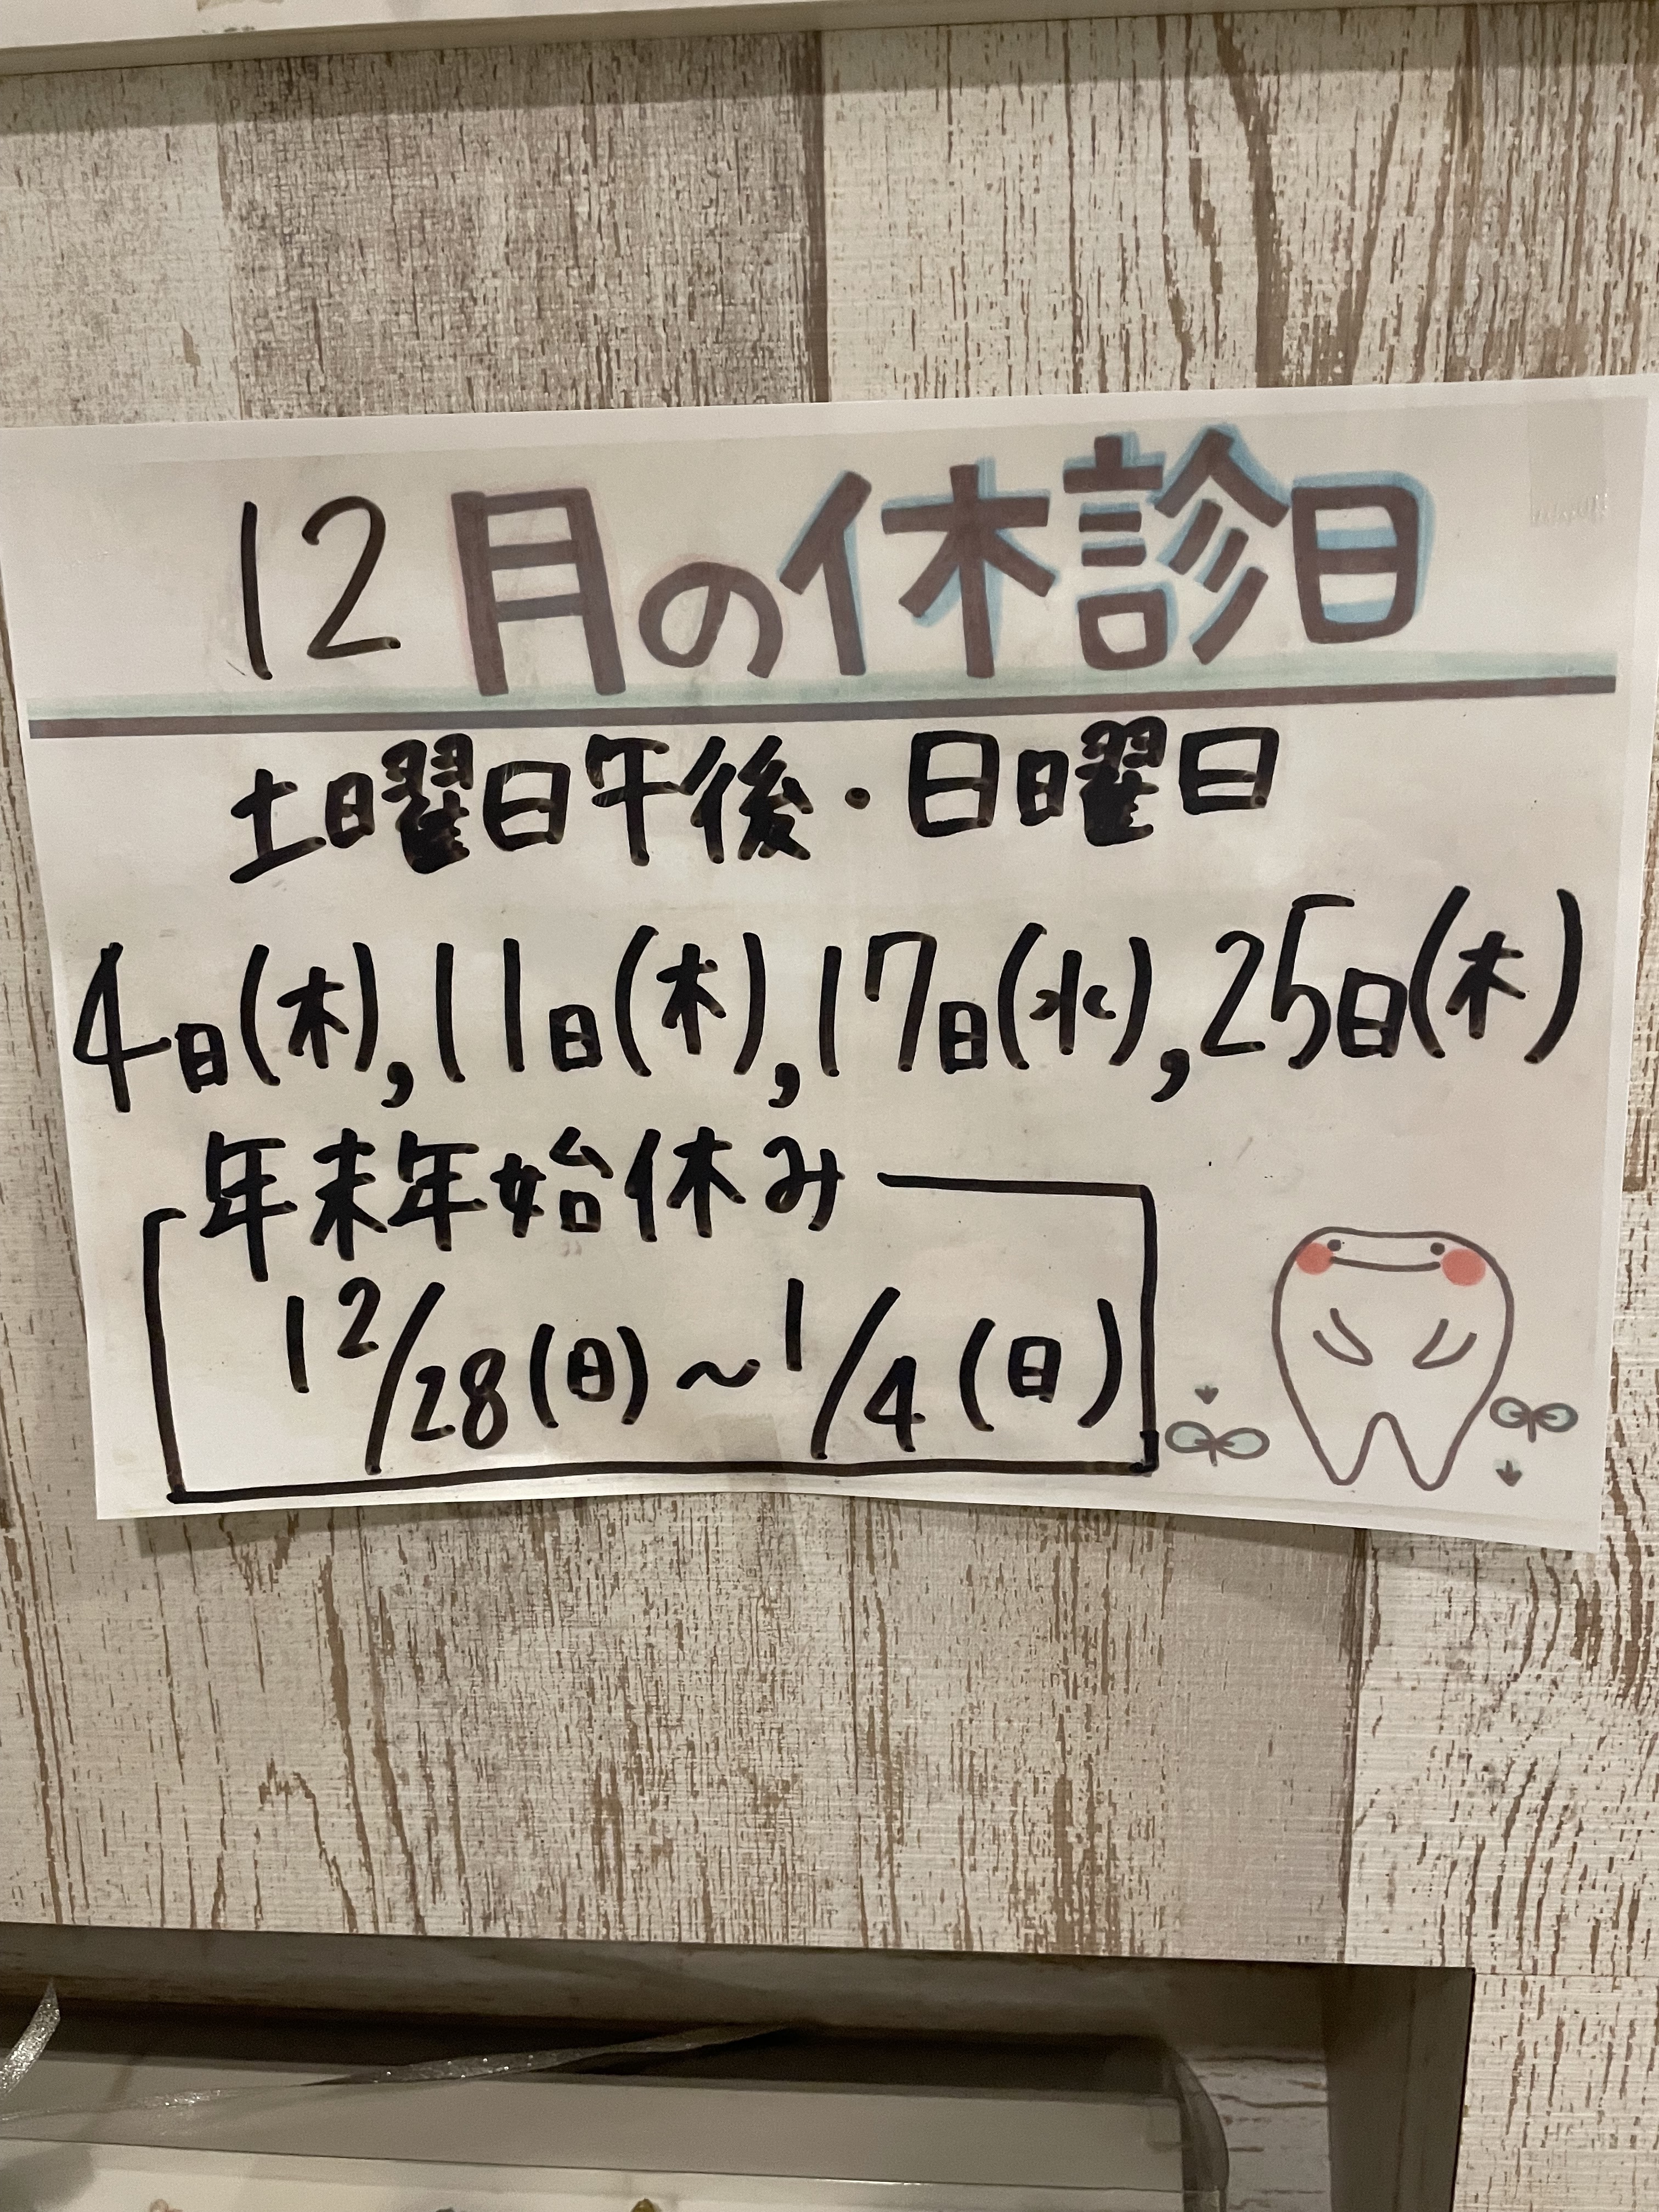 12月の休診日
土曜日午後・日曜日
4日(木),11日(木),17日(水),25日(木)
年末年始休み
12/28(日)~1/4(日)